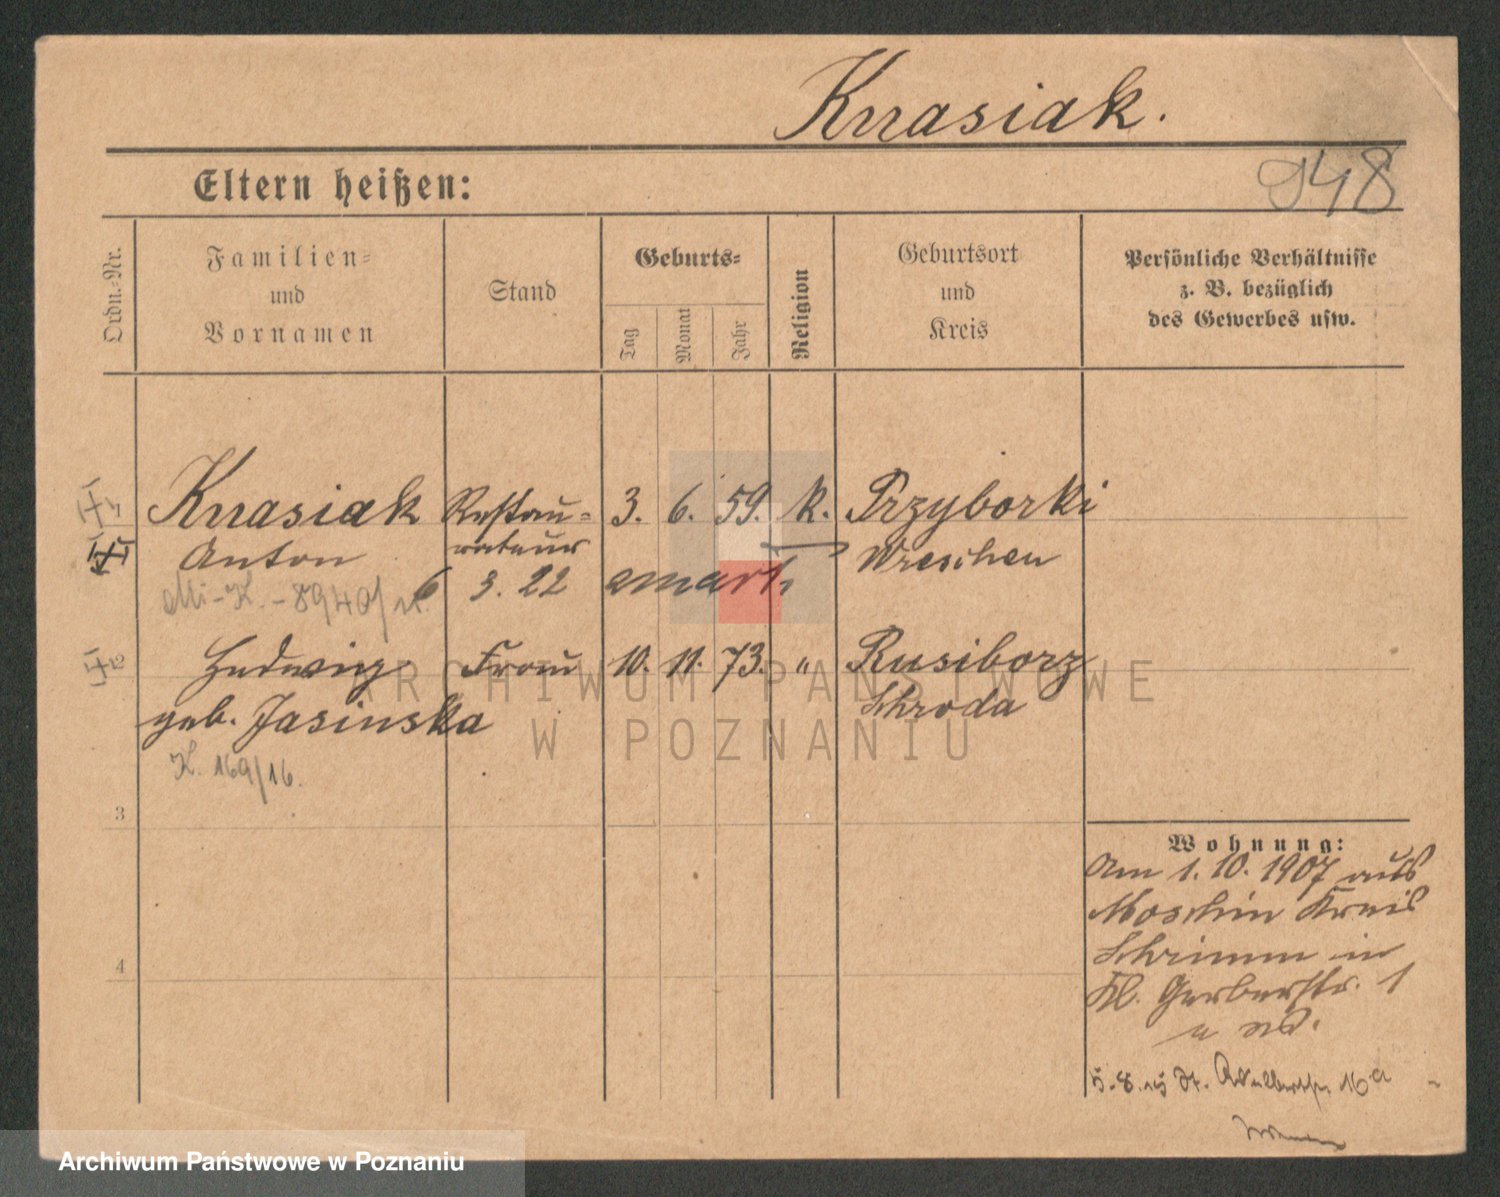 Knasiak.
948
Eltern heißen:
Ordn.-Nr.
Familien-
und
Vornamen
Stand
Geburts-
Tag
Monat
Jahr
Religion
Geburtsort
und
Kreis
Persönliche Verhältnisse
z. B. bezüglich
des Gewerbes usw.
Knasiak Restau- 3. 6. 59. k. Przyborki
Anton rateur Wreschen
6 3. 22
8940/
2 Hedwig Frau 10. 11. 73. " Rusiborz
geb. Jasinska Schroda
K. 169/16.
3
4
Wohnung:
Am 1. 10. 1907 aus
Moschin Kreis
Schrimm in
Kl. Gerberstr. 1
5.8.15 St. Adalbertstr. 16a
ARCHIWUM PAŃSTWOWE
W POZNANIU
Archiwum Państwowe w Poznaniu